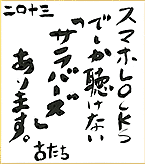 スマホLOCKS
でしか聴けない
「サラバーズ」
あります。
古たち
二〇十三